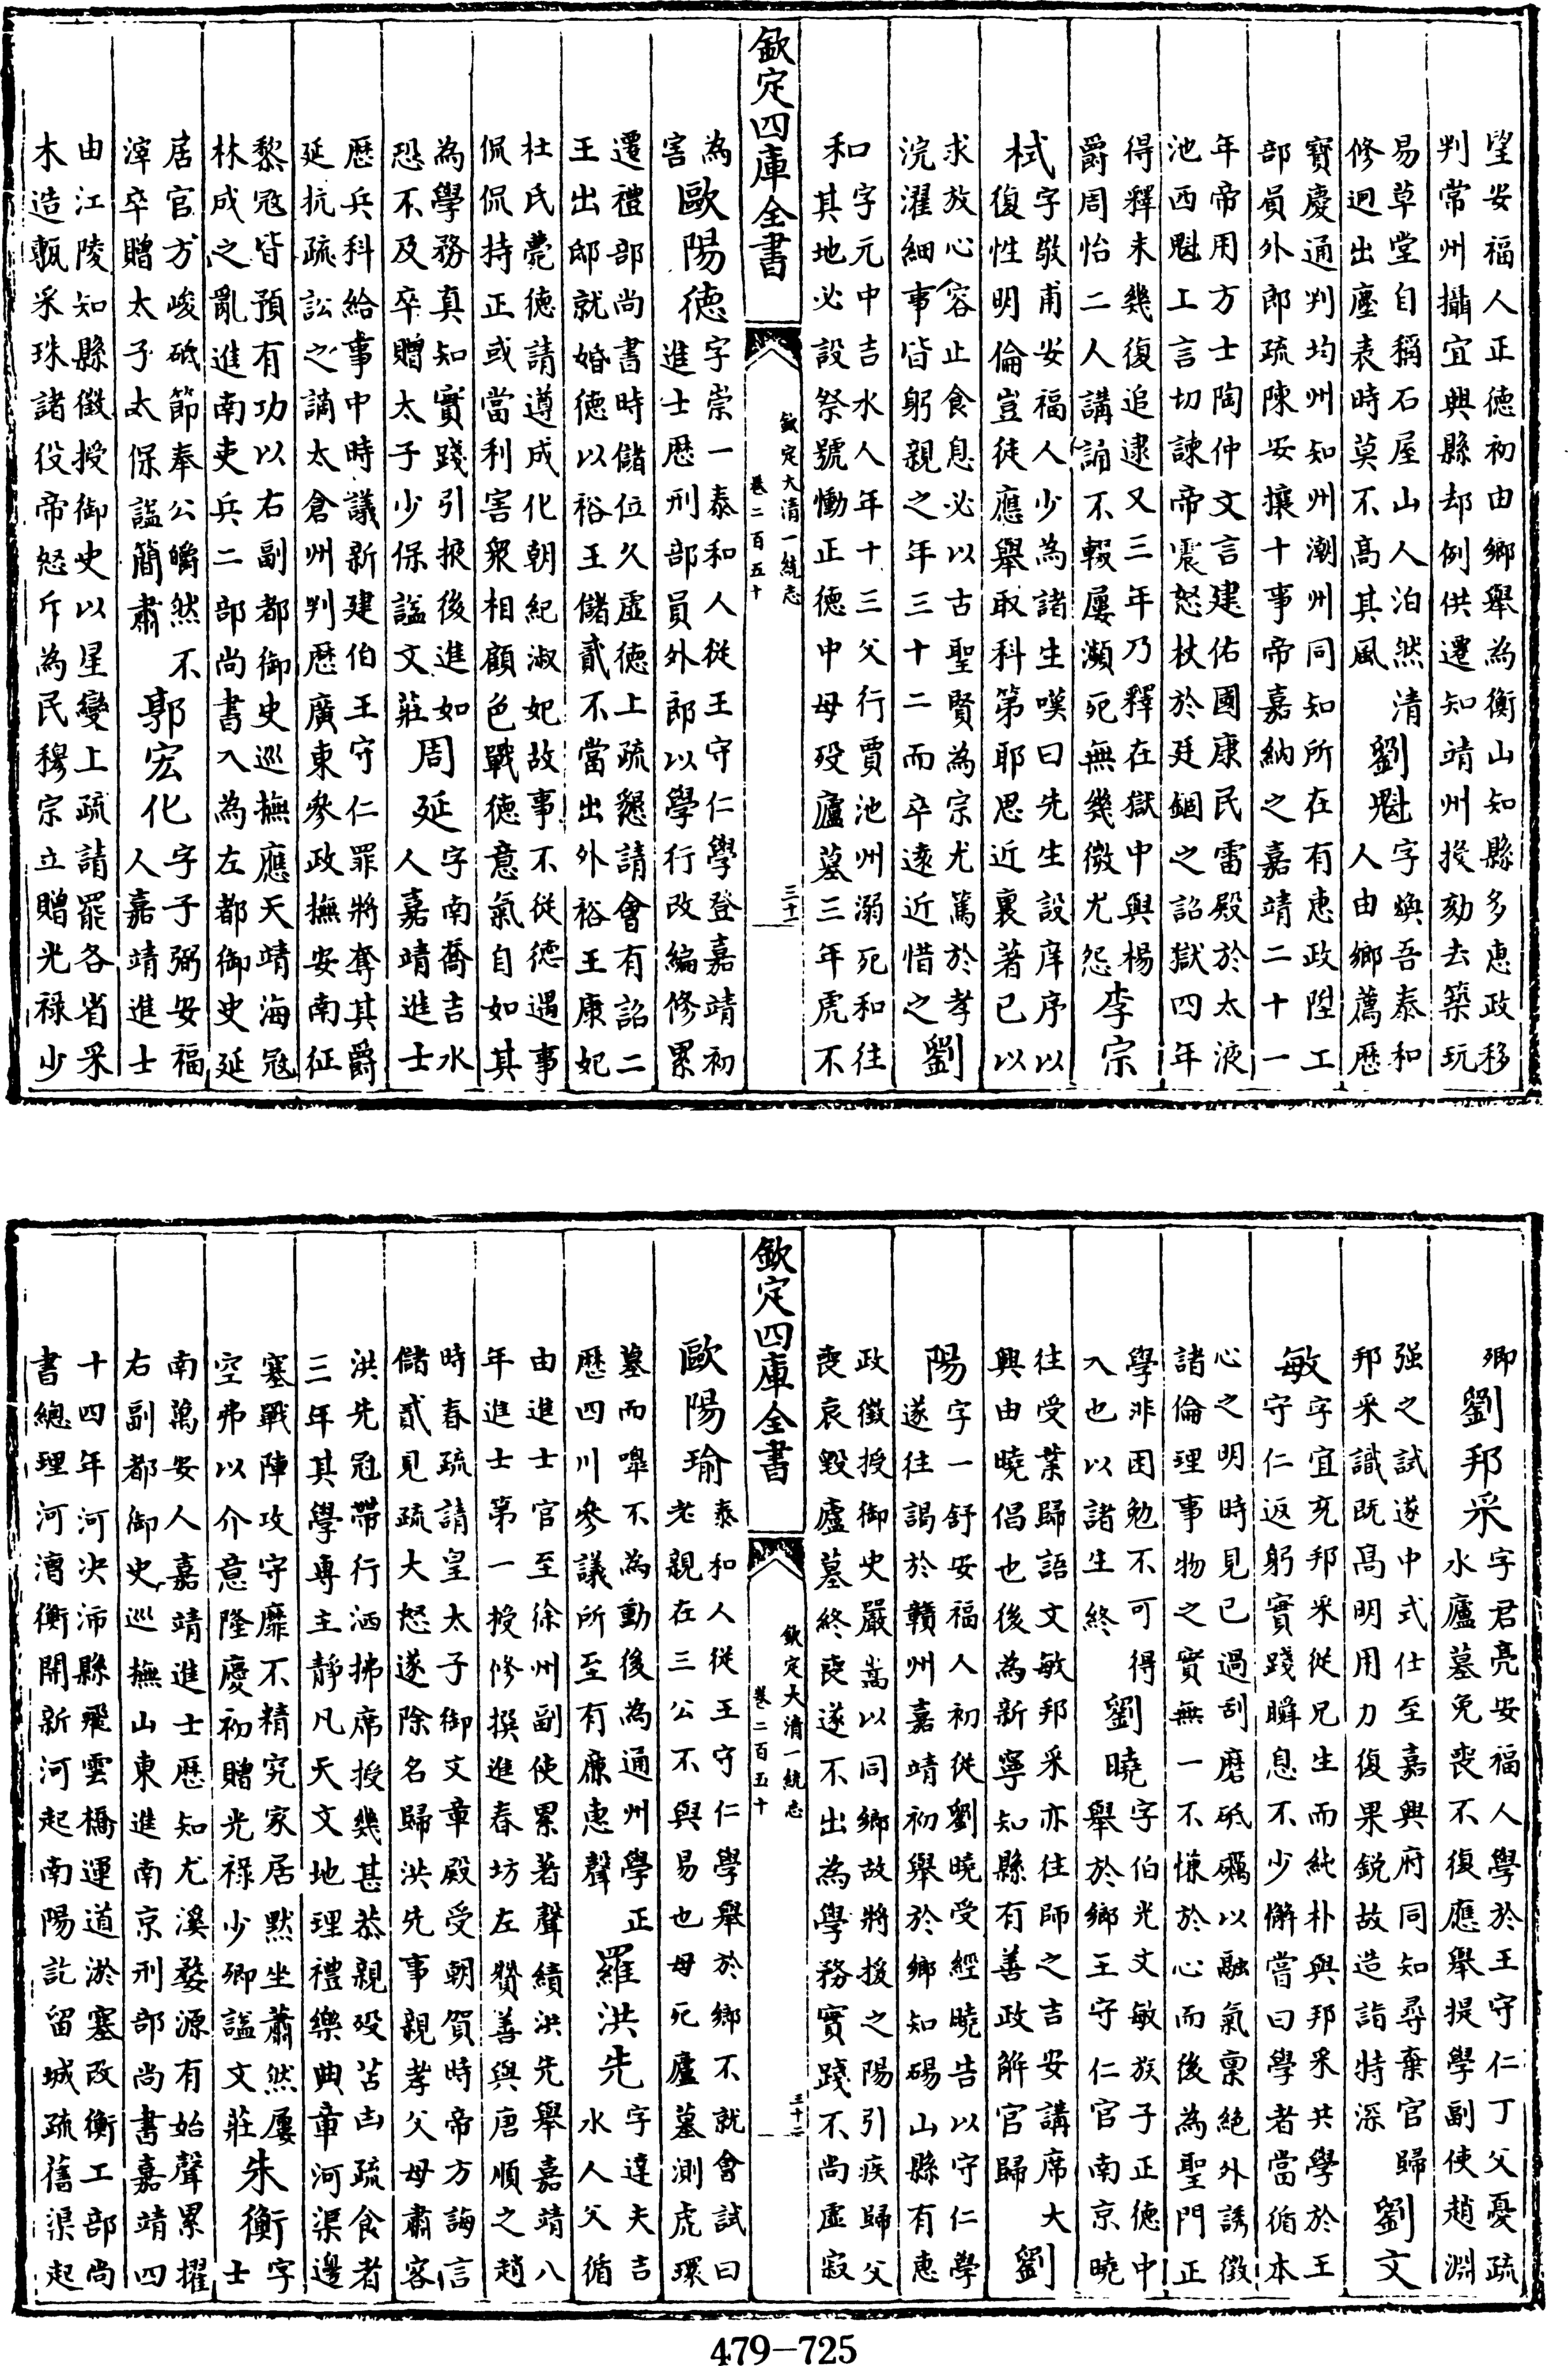 望安福人正德初由鄉舉為衡山知縣多惠政移
判常州攝宜興縣却例供遷知靖州投劾去築玩
易草堂自稱石屋山人泊然清
修迥出塵表時莫不高其風
劉魁
字煥吾泰和
人由鄉薦歷
寶慶通判均州知州潮州同知所在有惠政陞工
部員外郎疏陳安攘十事帝嘉納之嘉靖二十一
年帝用方士陶仲文言建佑國康民雷殿於太液
池西魁上言切諫帝震怒杖於廷錮之詔獄四年
得釋未幾復追逮又三年乃釋在獄中與楊
爵周怡二人講誦不輟屢瀕死無幾微尤怨
李宗
栻
字敬甫安福人少為諸生嘆曰先生設庠序以
復性明倫豈徒應舉取科第耶思近裏著已以
求放心容止食息必以古聖賢為宗尤篤於孝
浣濯細事皆躬親之年三十二而卒遠近惜之
劉
和
字元中吉水人年十三父行賈池州溺死和往
其地必設祭號慟正德中母歿廬墓三年虎不
欽定四庫全書
欽定大清一統志
卷二百五十
三十一
為
害
歐陽德
字崇一泰和人從王守仁學登嘉靖初
進士歷刑部員外郎以學行改編修累
遷禮部尚書時儲位久虛德上疏懇請會有詔二
王出邸就婚德以裕王儲貳不當出外裕王康妃
杜氏薨德請遵成化朝紀淑妃故事不從德遇事
侃侃持正或當利害眾相顧色戰德意氣自如其
為學務真知實踐引掖後進如
恐不及卒贈太子少保諡文莊
周延
字南喬吉水
人嘉靖進士
歷兵科給事中時議新建伯王守仁罪將奪其爵
延抗疏訟之謫太倉州判歷廣東參政撫安南征
黎冦皆預有功以右副都御史巡撫應天靖海冦
林成之亂進南吏兵二部尚書入為左都御史延
居官方峻砥節奉公皭然不
滓卒贈太子太保諡簡肅
郭宏化
字子弼安福
人嘉靖進士
由江陵知縣徵授御史以星變上疏請罷各省采
木造瓶采珠諸役帝怒斥為民穆宗立贈光禄少
卿
劉邦采
字君亮安福人學於王守仁丁父憂疏
水廬墓免喪不復應舉提學副使趙淵
强之試遂中式仕至嘉興府同知尋棄官歸
邦采識既高明用力復果銳故造詣特深
劉文
敏
字宜充邦采從兄生而純朴與邦采共學於王
守仁返躬實踐瞬息不少懈嘗曰學者當循本
心之明時見已過刮磨砥礪以融氣稟絕外誘徵
諸倫理事物之實無一不慊於心而後為聖門正
學非困勉不可得
入也以諸生終
劉曉
字伯光文敏族子正德中
舉於鄉王守仁官南京曉
往受業歸語文敏邦采亦往師之吉安講席大
興由曉倡也後為新寧知縣有善政解官歸
劉
陽
字一舒安福人初從劉曉受經曉告以守仁學
遂往謁於贛州嘉靖初舉於鄉知碭山縣有惠
政徵授御史嚴嵩以同鄉故將援之陽引疾歸父
喪哀毀廬墓終喪遂不出為學務實踐不尚虛寂
欽定四庫全書
欽定大清一統志
卷二百五十
三十二
歐陽瑜
泰和人從王守仁學舉於鄉不就會試曰
老親在三公不與易也母死廬墓測虎環
墓而嘷不為動後為通州學正
歷四川參議所至有廉惠聲
羅洪先
字達夫吉
水人父循
由進士官至徐州副使累著聲績洪先舉嘉靖八
年進士第一授修撰進春坊左贊善與唐順之趙
時春疏請皇太子御文章殿受朝賀時帝方誨言
儲貳見疏大怒遂除名歸洪先事親孝父母肅客
洪先冠帶行洒拂席授幾甚恭親歿苫凷疏食者
三年其學專主靜凡天文地理禮樂典章河渠邊
塞戰陣攻守靡不精究家居默坐蕭然屢
空弗以介意隆慶初贈光禄少卿諡文莊
朱衡
字
士
南萬安人嘉靖進士歷知尤溪婺源有始聲累擢
右副都御史巡撫山東進南京刑部尚書嘉靖四
十四年河決沛縣飛雲橋運道淤塞改衡工部尚
書總理河漕衡開新河起南陽訖留城疏舊渠起
479-725